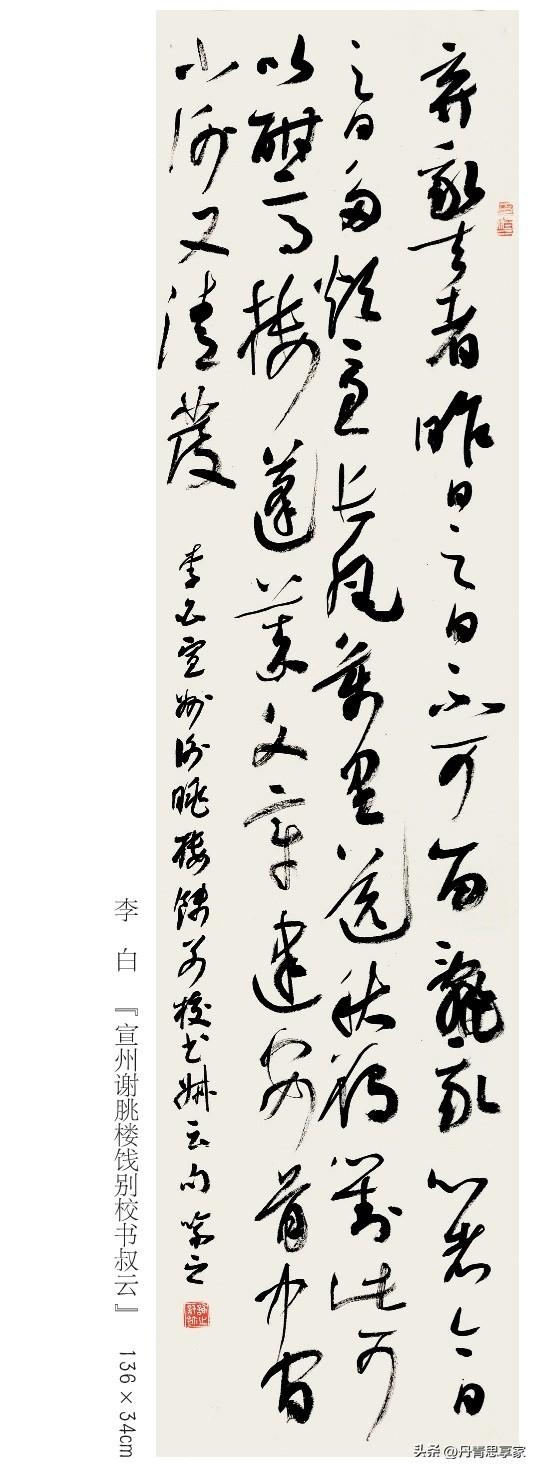 弃我去者昨日之日不可留亂我心者今日
之日多煩憂長風萬里送秋雁對此可
以酣高樓蓬萊文章建安骨中間
小謝又清發
李白宣州謝朓樓餞別校書叔云句
李白『宣州谢朓楼饯别校书叔云』 136×34cm
头条 @丹青思享家